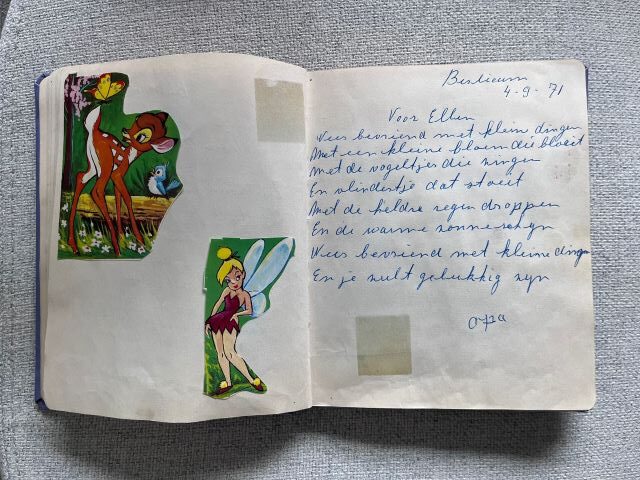 Berlicum
4-9-71
Voor Ellen
Wees bevriend met klein dingen
Met een kleine bloem die bloeit
Met de vogeltjes die zingen
En vlindertje dat stoeit
Met de heldre regen droppen
En de warme zonneschyn
Wees bevriend met kleine dingen
En je zult gelukkig zyn
opa